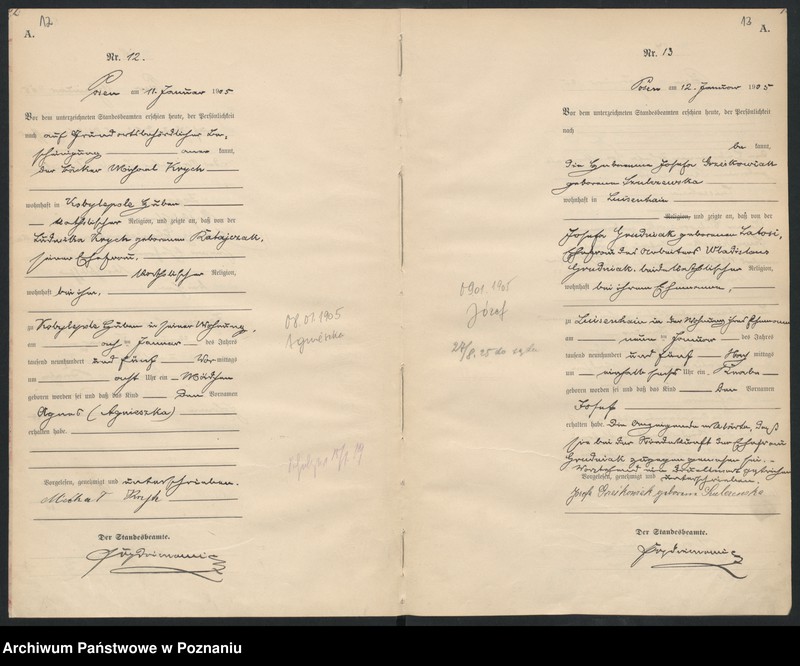 12
A.
Nr. 12.
Posen am 11. Januar 1905
Vor dem unterzeichneten Standesbeamten erschien heute, der Persönlichkeit
nach auf Grund ortsbehördlicher Be-
scheinigung kannt,
der Bäcker Michael Krych
wohnhaft in Kobylepole Huben
katholischer Religion, und zeigte an, daß von der
Ludwika Krych geborenen Ratajczak,
seiner Ehefrau,
katholischer Religion,
wohnhaft bei ihm,
zu Kobylepole Huben in seiner Wohnung,
am acht ten Januar des Jahres
tausend neunhundert und fünf Vor mittags
um acht Uhr ein Mädchen
geboren worden sei und daß das Kind den Vornamen
Agnes (Agnieszka)
erhalten habe.
Vorgelesen, genehmigt und unterschrieben.
Michał Krych
Der Standesbeamte.
08.01.1905
Agnieszka
13
A.
Nr. 13
Posen am 12. Januar 1905
Vor dem unterzeichneten Standesbeamten erschien heute, der Persönlichkeit
nach
be kannt,
die Hebamme Josefa
geborene
wohnhaft in Luisenhain
Religion, und zeigte an, daß von der
Josefa Grudniak geborenen
Ehefrau des Arbeiters Wladislaus
Grudniak, beide katholischer Religion,
wohnhaft bei ihrem Ehemanne,
zu Luisenhain in der Wohnung ihres Ehemannes
am neun ten Januar des Jahres
tausend neunhundert und fünf Nach mittags
um einhalb sechs Uhr ein Knabe
geboren worden sei und daß das Kind den Vornamen
Josef
erhalten habe. Die Anzeigende erklärte, daß
sie bei der Niederkunft der Ehefrau
Grudniak zugegen gewesen sei.
Vorstehend ein Druckwort gestrichen
Vorgelesen, genehmigt und unterschrieben.
Der Standesbeamte.
09.01.1905
Józef
Archiwum Państwowe w Poznaniu